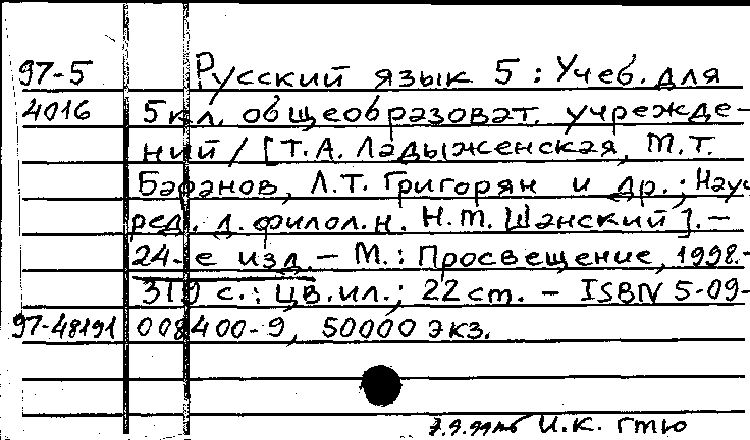 97-5 Русский язык 5 : Учеб. для
4016 5 кл. общеобразоват. учрежде-
ний / [Т.А. Ладыженская, М.Т.
Баранов, Л.Т. Григорян и др.; Науч.
ред. д. филол. н. Н.М. Шанский]. –
24-е изд. – М. : Просвещение, 1998. –
319 с. : цв. ил. ; 22 ст. – ISBN 5-09-
97-48191 008400-9, 50000 экз.
И.К. ГТЮ